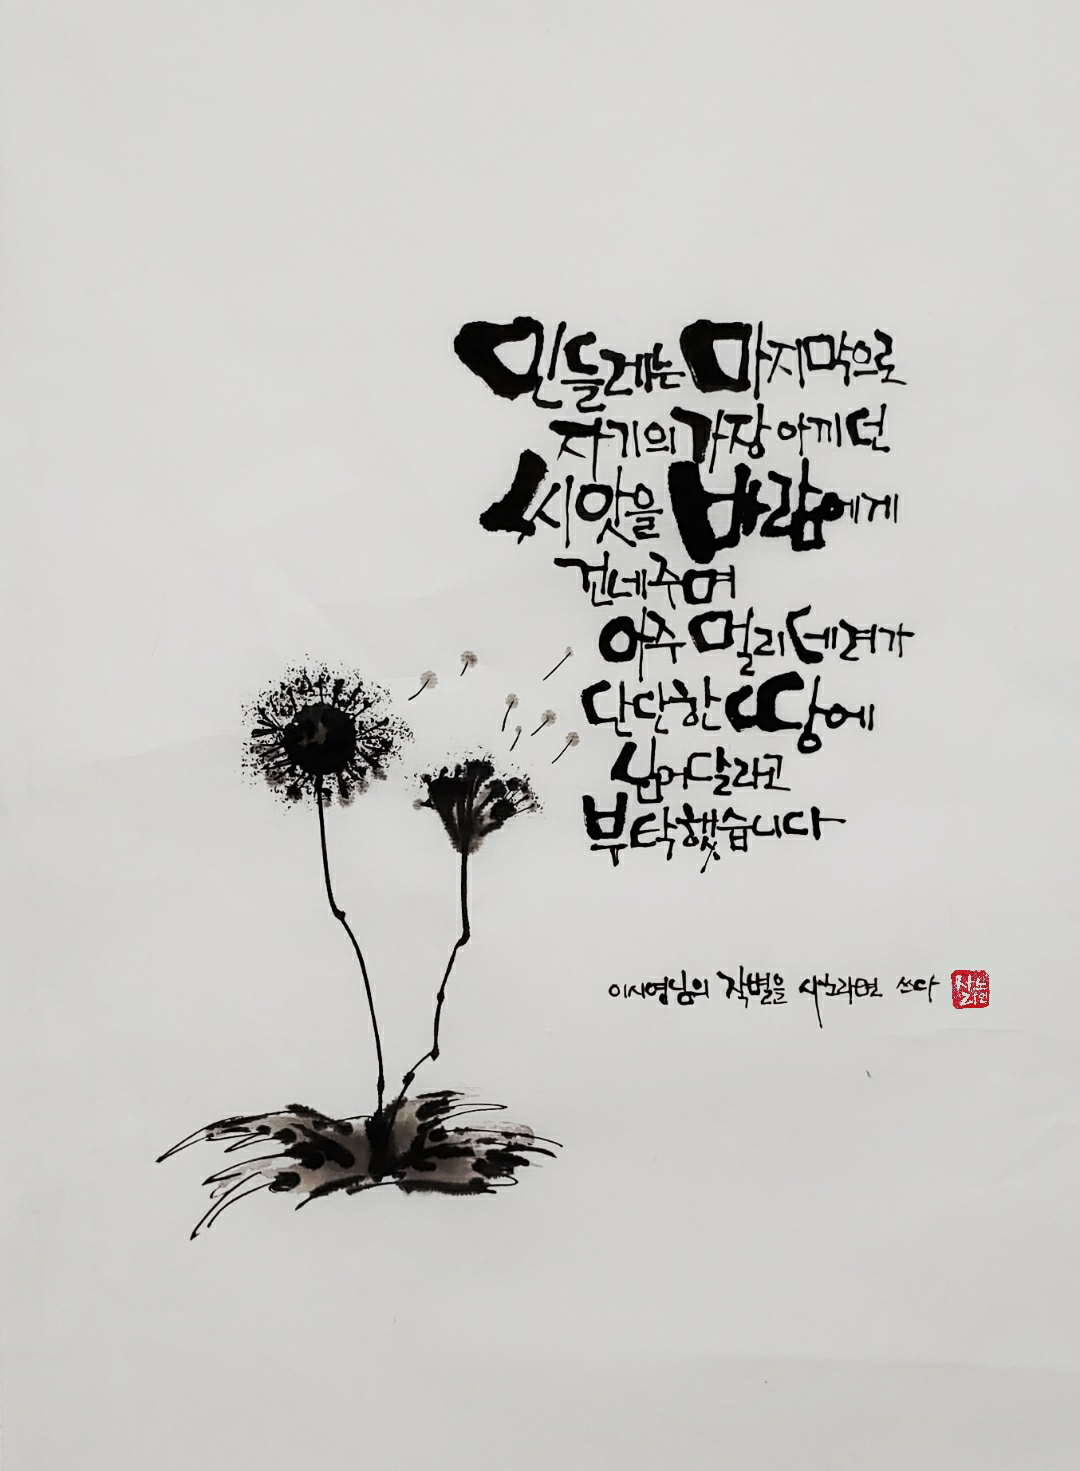 민들레는 마지막으로
자기의 가장 아끼던
씨앗을 바람에게
건네주며
아주 멀리 데려가
단단한 땅에
심어달라고
부탁했습니다
이시영님의 작별을 사노라면 쓰다